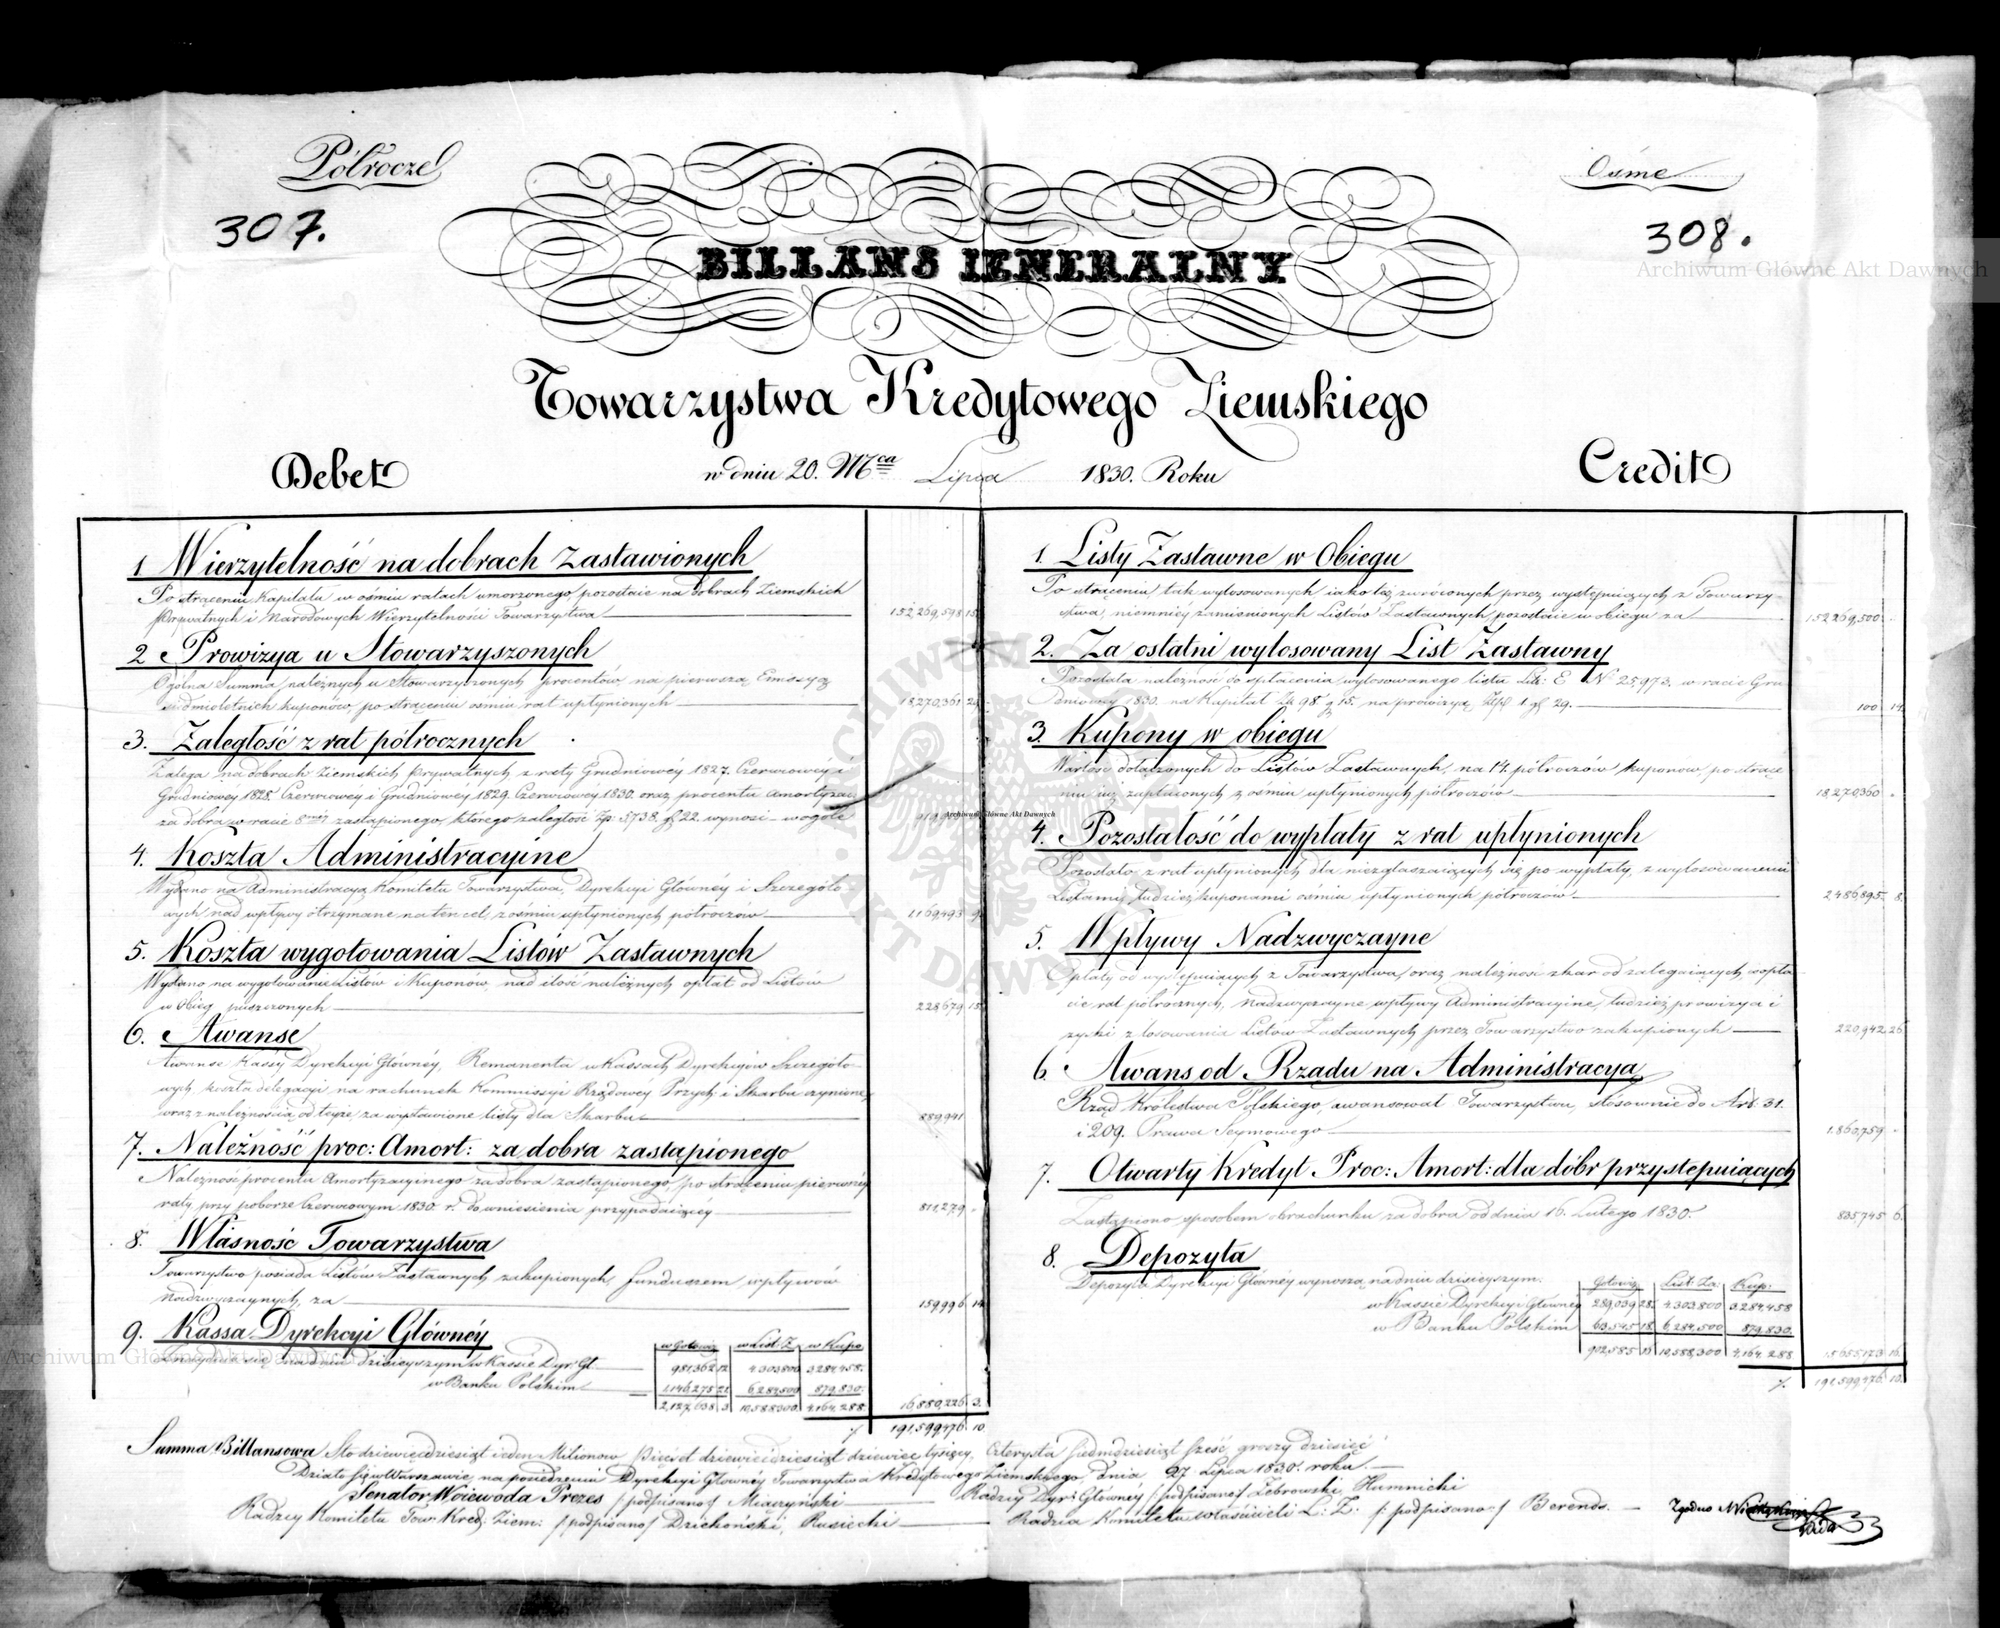 Półrocze
Ósme
307.
308.
Archiwum Główne Akt Dawnych
BILLANS IENERALNY
Towarzystwa Kredytowego Ziemskiego
Debet
w dniu 20. Mca Lipca 1830. Roku
Credit
1 Wierzytelność na dobrach Zastawionych
Po strąceniu Kapitału w ośmiu ratach umorzonego, pozostaie na dobrach Ziemskich
Prywatnych i Narodowych Wierzytelności Towarzystwa 152,269,598 15
2 Prowizya u Stowarzyszonych
Ogólna Summa należnych u Stowarzyszonych procentów, na pierwszą Emissyą
siedmioletnich kuponów, po strąceniu ośmiu rat upłynionych 18,270,361
3. Zaległość z rat półrocznych
Zalega na dobrach Ziemskich Prywatnych z raty Grudniowéy 1827. Czerwcowéy i
Grudniowéy 1828. Czerwcowéy i Grudniowéy 1829. Czerwcowéy 1830. oraz procentu Amortyzac:
za dobra w racie 8méy zastąpionego, którego zaległość Zp: 5738. gr 22. wynosi – wogóle
4. Koszta Administracyine
Wydano na Administracyą Komitetu Towarzystwa, Dyrekcyi Głównéy i Szczegóło-
wych nad wpływy otrzymane na ten cel, z ośmiu upłynionych półroczów 1,169,493 9
5. Koszta wygotowania Listów Zastawnych
Wydano na wygotowanie Listów i Kuponów, nad ilość należnych opłat od Listów
w obieg puszczonych 228,679 15
6. Awanse
Awanse Kassy Dyrekcyi Głównéy, Remanenta w Kassach Dyrekcyów Szczegóło-
wych, koszta delegacyi na rachunek Kommissyi Rządowéy Przych: i Skarbu czynione
oraz z należnością od teyże za wystawione listy dla Skarbu 889,941
7. Należność proc: Amort: za dobra zastąpionego
Należność procentu Amortyzacyinego za dobra zastąpionego, po strąceniu pierwszéy
raty przy poborze Czerwcowym 1830. r. do wniesienia przypadaiącéy 811,279
8. Własność Towarzystwa
Towarzystwo posiada Listów Zastawnych zakupionych, funduszem wpływów
Nadzwyczaynych, za 159,996 14
9. Kassa Dyrekcyi Głównéy
w Gotowiz w List: Z. w Kupo
Znayduie się na dniu dzisieyszym w Kassie Dyr: Gł: 981,362 12 4,303,800 3,284,458
w Banku Polskim 1,146,275 21 6,284,500 879,830
2,127,638 3 10,588,300 4,164,288 16,880,226 3
191,599,476 10
1. Listy Zastawne w Obiegu
Po strąceniu tak wylosowanych iako też zwróconych przez występuiących z Towarzy-
stwa, niemniéy zamienionych Listów Zastawnych pozostaie w obiegu za 152,269,500
2. Za ostatni wylosowany List Zastawny
Pozostała należność do spłacenia wylosowanego listu Lit: E No 25,973. w racie Gru-
dniowéy 1830. na Kapitał Zł 98. g 15. na prowizyą Złp 1. gr 29. 100 14
3. Kupony w obiegu
Wartość dołączonych do Listów Zastawnych, na 14. półroczów kuponów, po strące-
niu iuż zapłaconych z ośmiu upłynionych półroczów 18,270,360
4. Pozostałość do wypłaty z rat upłynionych
Pozostało z rat upłynionych dla niezgłaszaiących się po wypłaty, z wylosowanemi
Listami, tudzież kuponami ośmiu upłynionych półroczów 2,486,895 8
5. Wpływy Nadzwyczayne
Opłaty od występuiących z Towarzystwa, oraz należność z kar od zalegaiących w opła-
cie rat półrocznych, Nadzwyczayne wpływy Administracyine, tudzież prowizya i
zyski z losowania Listów Zastawnych przez Towarzystwo zakupionych 220,942 26
6. Awans od Rządu na Administracyą
Rząd Królestwa Polskiego, awansował Towarzystwu, stósownie do Art: 31.
i 209. Prawa Seymowego 1,860,759
7. Otwarty Kredyt Proc: Amort: dla dóbr przystępuiących
Zastąpiono sposobem obrachunku za dobra od dnia 16. Lutego 1830. 835,745 6
8. Depozyta
Gotowiz List: Za: Kup:
Depozyta Dyrekcyi Głównéy wynoszą na dniu dzisieyszym.
w Kassie Dyrekcyi Głównéy 289,039 28 4,303,800 3,284,458
w Banku Polskim 613,545 18 6,284,500 879,830
902,585 16 10,588,300 4,164,288 15,655,173 16
191,599,476 10
Summa Billansowa Sto dziewięćdziesiąt ieden Milionów Pięćset dziewięćdziesiąt dziewięć tysięcy, Czterysta Siedmdziesiąt sześć, groszy dziesięć
Działo się w Warszawie, na posiedzeniu Dyrekcyi Głównéy Towarzystwa Kredytowego Ziemskiego, dnia 27. Lipca 1830. roku.
Senator Woiewoda Prezes /:podpisano:/ Miączyński Radzcy Dyr: Głównéy /:podpisano:/ Żebrowski, Humnicki
Radzcy Komitetu Tow: Kred: Ziem: /:podpisano:/ Dziekoński, Rusiecki Radzca Komitetu właścicieli L: Z: /:podpisano:/ Berends.
Zgodno